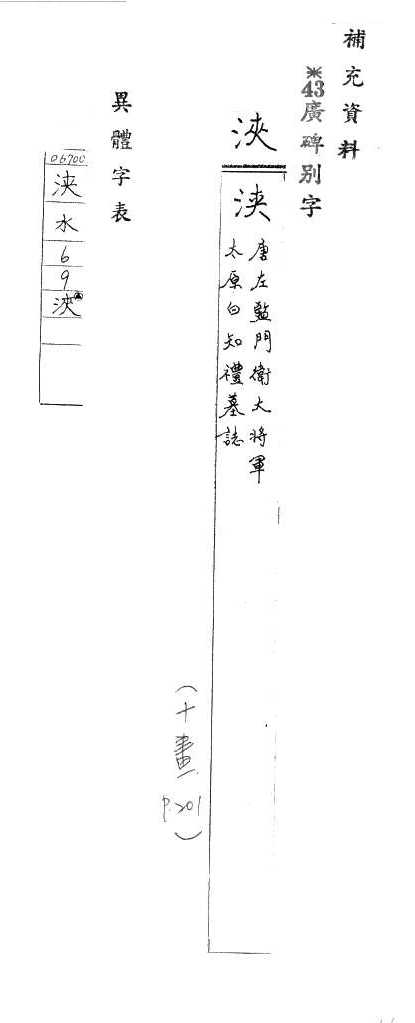 補充資料
※43廣碑别字
浹
浃
唐左監門衛大将軍
太原白知禮墓誌
(十畫 P.201)
異體字表
06700
浃
水
6
9
浹